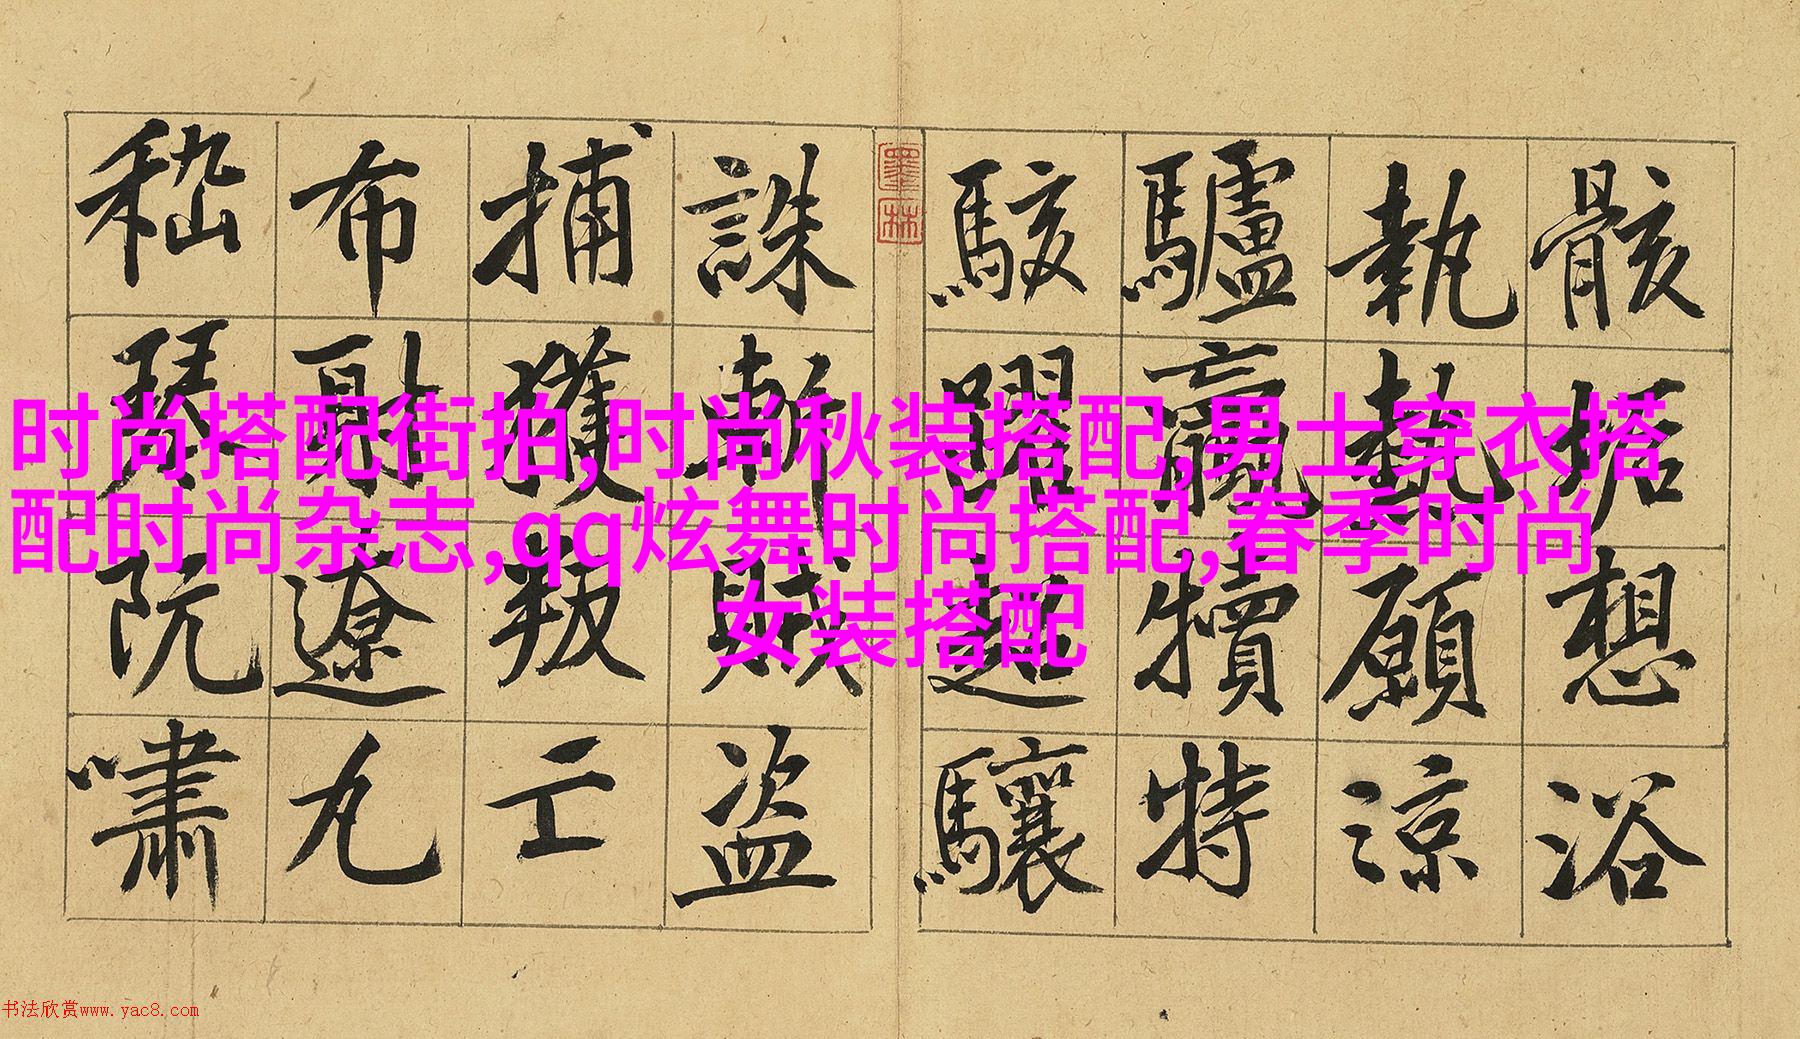 骸垢想浴
執熱願涼
驢驘犢特
駭躍超驤
墨林
誅斬賊盜
捕獲叛亡
布射遼丸
嵇琴阮嘯
时尚搭配街拍,时尚秋装搭配,男士穿衣搭
配时尚杂志,qq炫舞时尚搭配,春季时尚
女装搭配
书法欣赏www.yac8.com